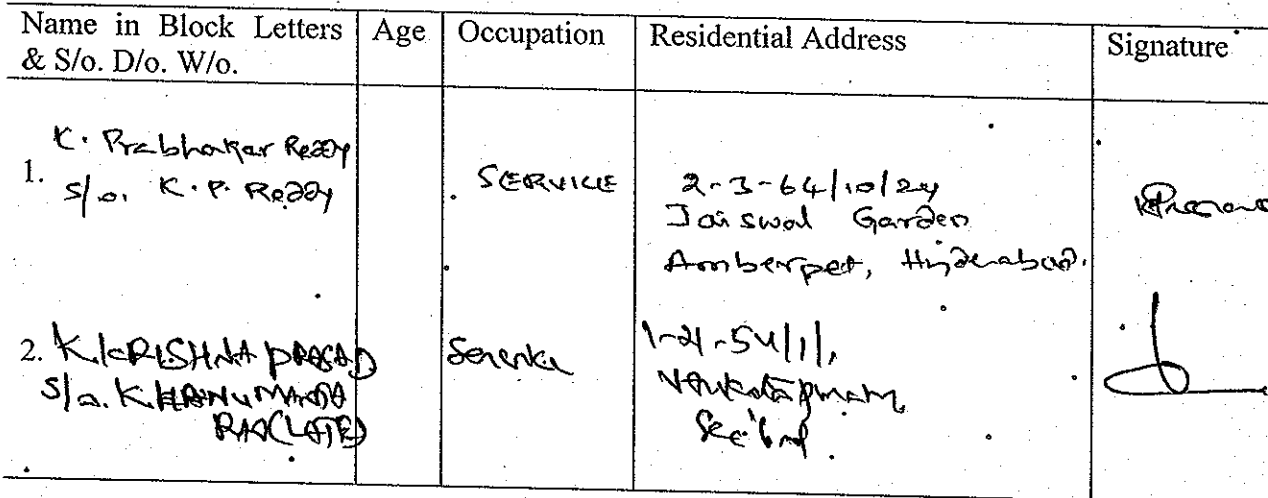 Name in Block Letters & S/o. D/o. W/o. Age Occupation Residential Address Signature
1. K. Prabhakar Reddy
S/o. K. P. Reddy
SERVICE
2-3-64/10/24
Jaiswal Garden
Amberpet, Hyderabad.
2. K. KRISHNA PRASAD
S/o. K. HANUMANTA
RAO (LATE)
Service
1-21-54/1/1,
Venkatapuram,
Sec'bad.